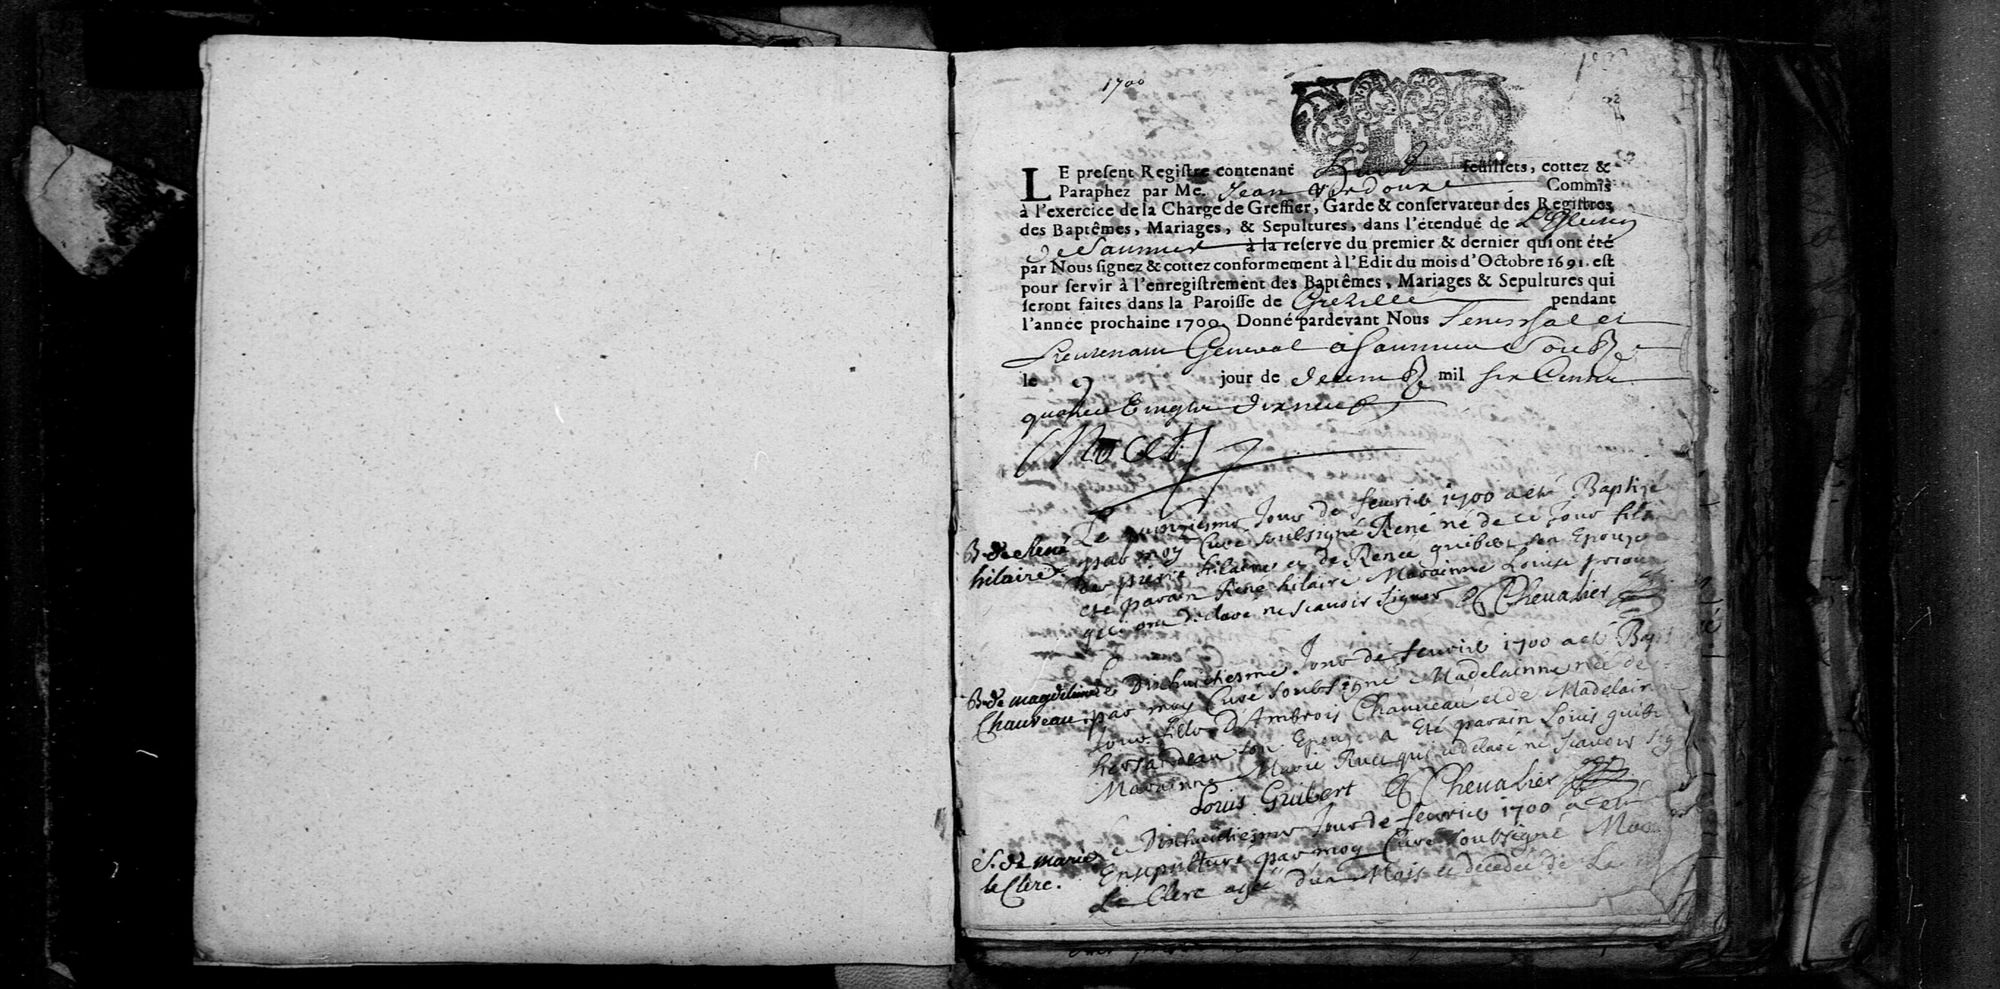 1700
LE present Registre contenant huit feuillets, cottez &
Paraphez par Me. Jean Verdoux Commis
à l'exercice de la Charge de Greffier, Garde & conservateur des Registres
des Baptêmes, Mariages, & Sepultures, dans l'étenduë de
de Saumur à la reserve du premier & dernier qui ont été
par Nous signez & cottez conformement à l'Edit du mois d'Octobre 1691. est
pour servir à l'enregistrement des Baptêmes, Mariages & Sepultures qui
seront faites dans la Paroisse de Grezillé pendant
l'année prochaine 1700. Donné pardevant Nous Seneschal et
Lieutenant General a Saumur
le 9 jour de decembre mil six Cents
quatre Vingts dixneuf
B. de René
hilaire
Le quinziesme Jour de feuvrier 1700 a eté Baptizé
par moy Curé soubsigné René né de ce Jour fils
de pierre hilaire et de Renee quibert son Epouze
eté parain René hilaire Maraine Louise
qui ont declaré ne scavoir signer Chevalier
B. de magdelaine
Chauveau
Le Dixhuitiesme Jour de feuvrier 1700 a eté Bapt
par moy Curé soubsigné Madelainne née de
Jour fille D'Ambrois Chauveau et de Madelain
son Epouze a Eté parain Louis guib
Marainne Marie qui a declaré ne scavoir sig
Louis Guibert Chevalier
S. de marie
le Clerc.
Le Dixhuitiesme Jour de feuvrier 1700 a eté
Ensepulturé par moy Curé soubsigné
Le Clerc agée d'un Mois et decedée de